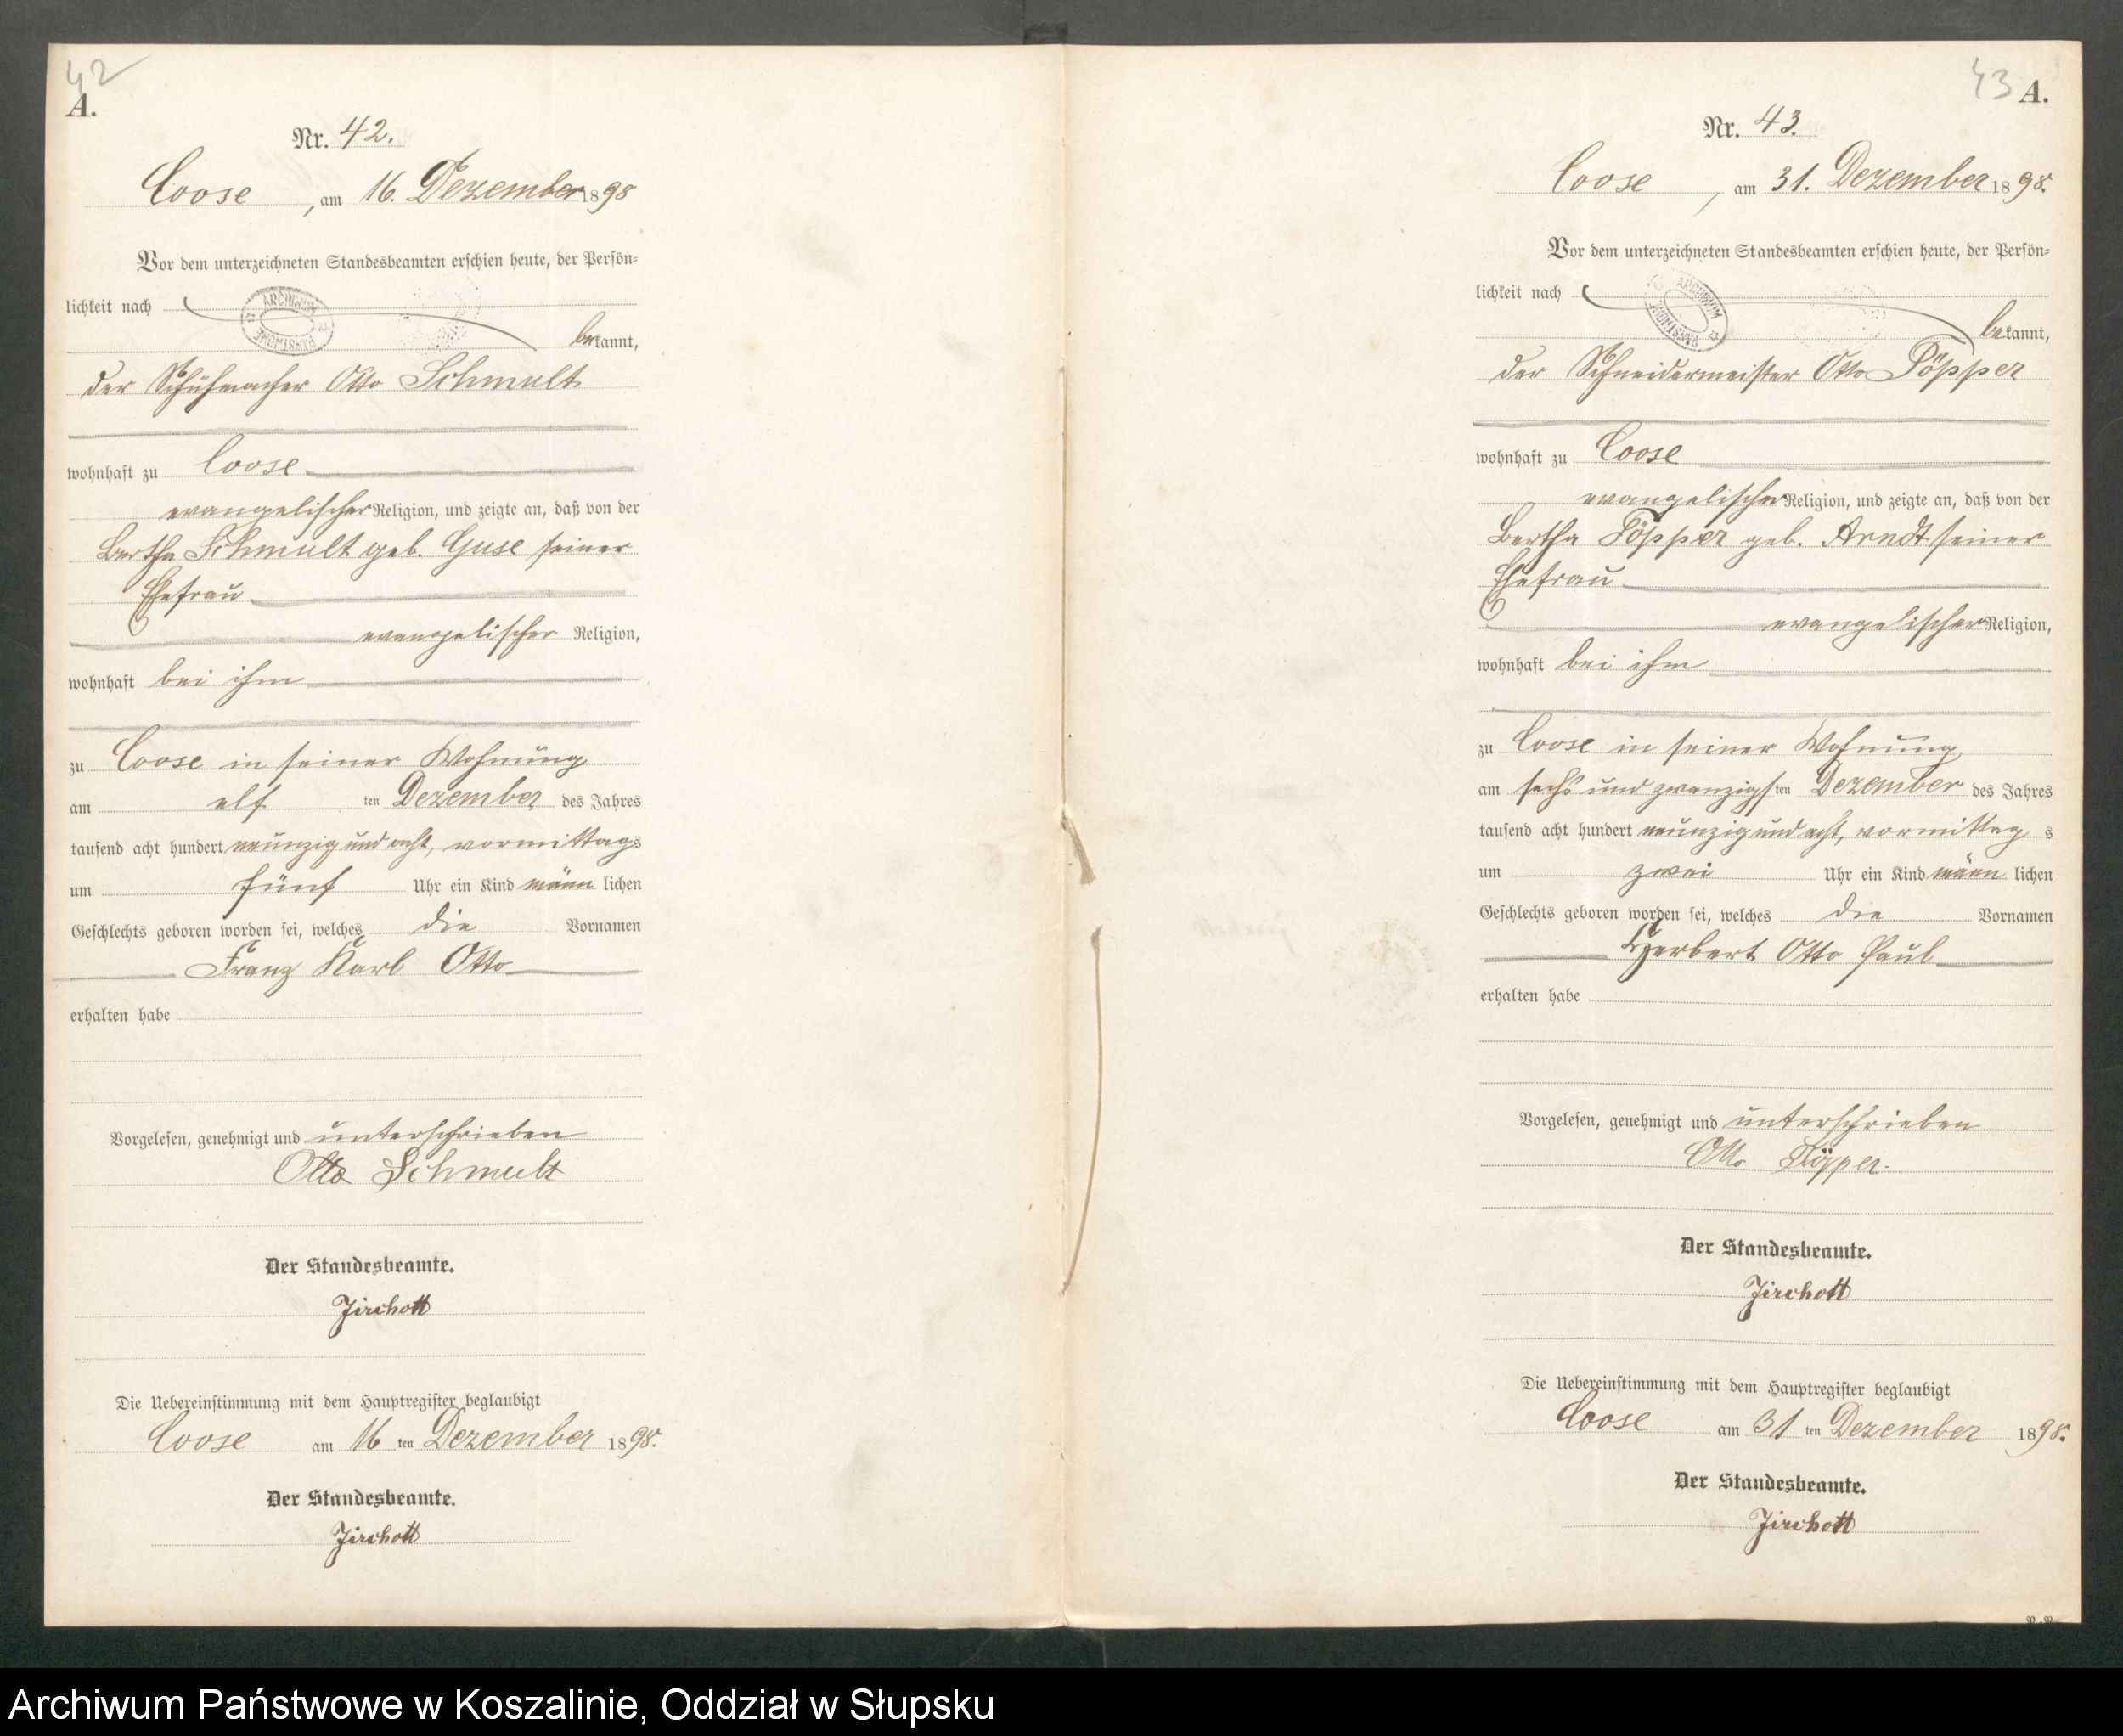 42
A.
Nr. 42.
Coose, am 16. Dezember 1898
Vor dem unterzeichneten Standesbeamten erschien heute, der Persön-
lichkeit nach
bekannt,
der Schuhmacher Otto Schmult
wohnhaft zu Coose
evangelischer Religion, und zeigte an, daß von der
Bertha Schmult geb. Guse seiner
Ehefrau
evangelischer Religion,
wohnhaft bei ihm
zu Coose in seiner Wohnung
am elf ten Dezember des Jahres
tausend acht hundert neunzig und acht, vormittags
um fünf Uhr ein Kind männlichen
Geschlechts geboren worden sei, welches die Vornamen
Franz Karl Otto
erhalten habe
Vorgelesen, genehmigt und unterschrieben
Otto Schmult
Der Standesbeamte.
Zirchott
Die Uebereinstimmung mit dem Hauptregister beglaubigt
Coose am 16 ten Dezember 1898.
Der Standesbeamte.
Zirchott
43
A.
Nr. 43.
Coose, am 31. Dezember 1898.
Vor dem unterzeichneten Standesbeamten erschien heute, der Persön-
lichkeit nach
bekannt,
der Schneidermeister Otto Töpper
wohnhaft zu Coose
evangelischer Religion, und zeigte an, daß von der
Bertha Töpper geb. Arndt seiner
Ehefrau
evangelischer Religion,
wohnhaft bei ihm
zu Coose in seiner Wohnung
am sechs und zwanzigsten Dezember des Jahres
tausend acht hundert neunzig und acht, vormittags
um zwei Uhr ein Kind männlichen
Geschlechts geboren worden sei, welches die Vornamen
Herbert Otto Paul
erhalten habe
Vorgelesen, genehmigt und unterschrieben
Otto Töpper.
Der Standesbeamte.
Zirchott
Die Uebereinstimmung mit dem Hauptregister beglaubigt
Coose am 31 ten Dezember 1898.
Der Standesbeamte.
Zirchott
Archiwum Państwowe w Koszalinie, Oddział w Słupsku